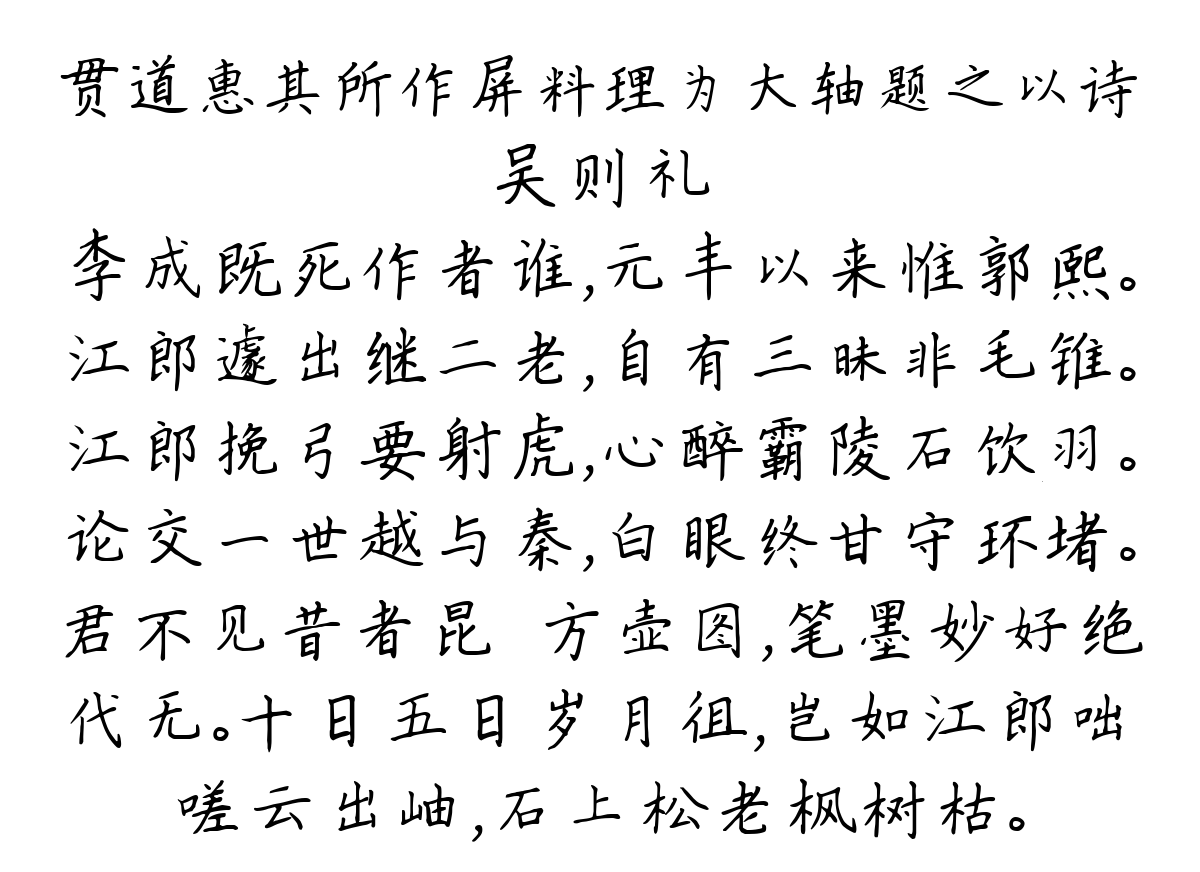 贯道惠其所作屏料理为大轴题之以诗
吴则礼
李成既死作者谁,元丰以来惟郭熙。
江郎遽出继二老,自有三昧非毛锥。
江郎挽弓要射虎,心醉霸陵石饮羽。
论交一世越与秦,白眼终甘守环堵。
君不见昔者昆 方壶图,笔墨妙好绝
代无。十日五日岁月徂,岂如江郎咄
嗟云出岫,石上松老枫树枯。